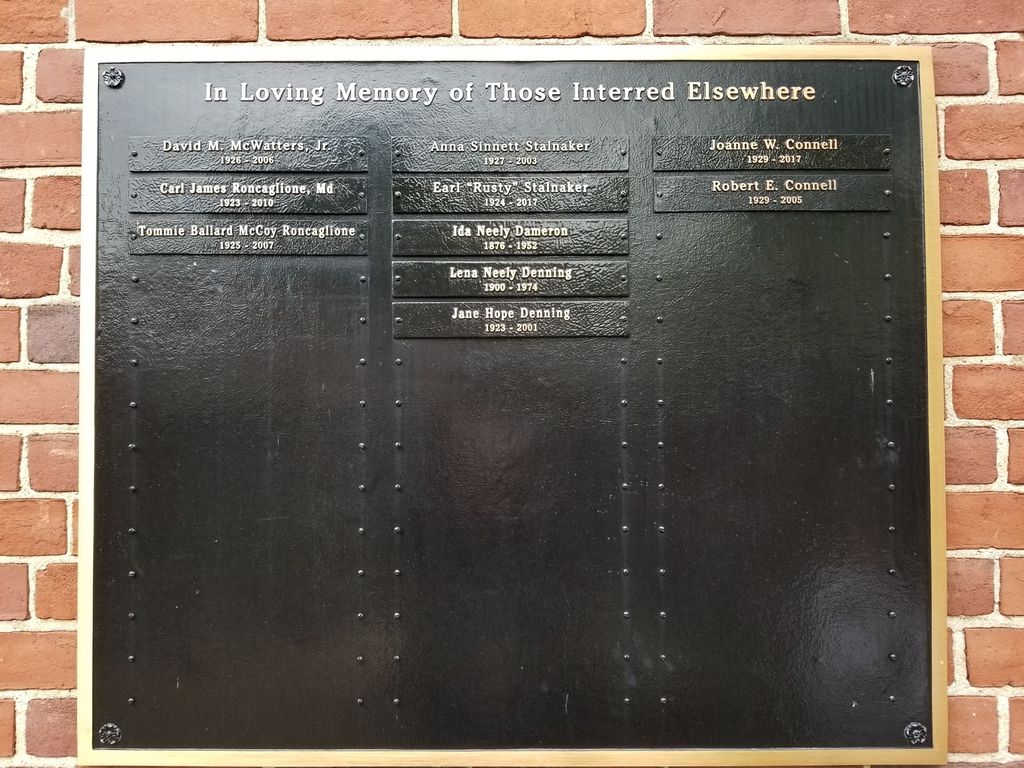 In Loving Memory of Those Interred Elsewhere
David M. McWatters, Jr.
1926 - 2006
Carl James Roncaglione, Md
1923 - 2010
Tommie Ballard McCoy Roncaglione
1925 - 2007
Anna Sinnett Stalnaker
1927 - 2003
Earl "Rusty" Stalnaker
1924 - 2017
Ida Neely Dameron
1876 - 1952
Lena Neely Denning
1900 - 1974
Jane Hope Denning
1923 - 2001
Joanne W. Connell
1929 - 2017
Robert E. Connell
1929 - 2005